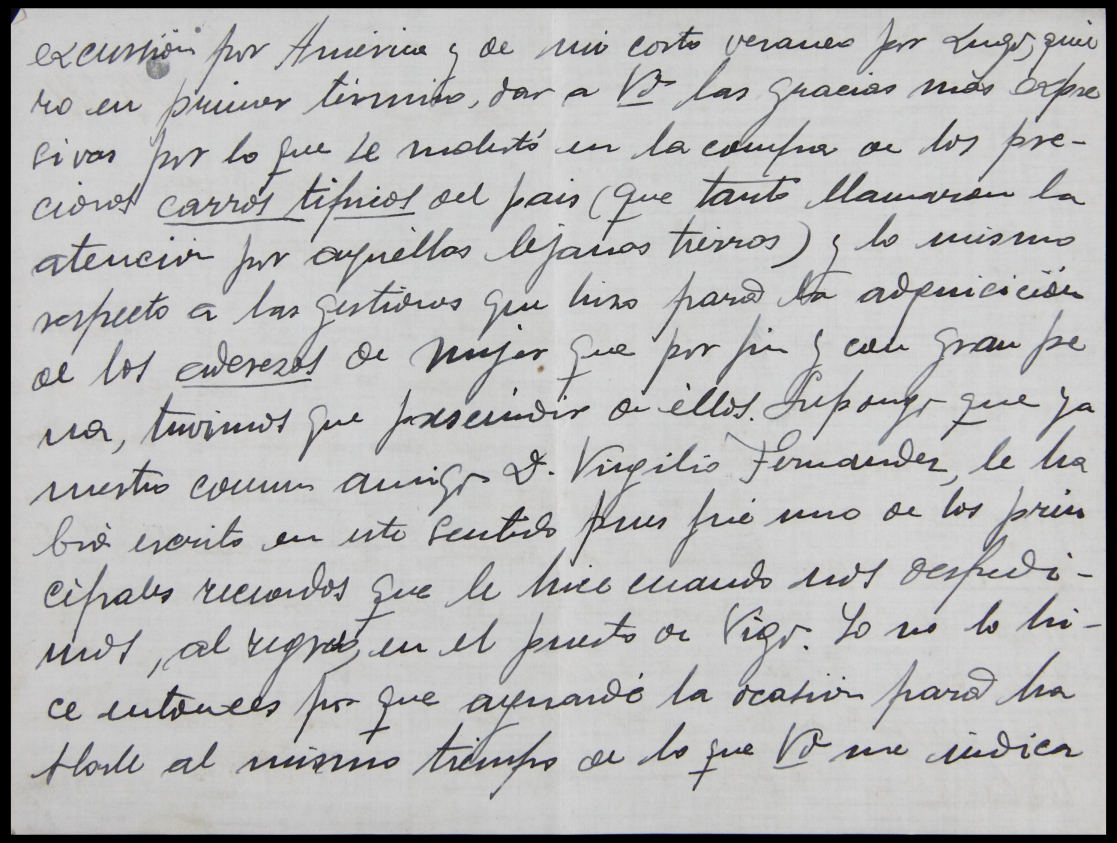 excursión por América y de mi corto veraneo por Lugo, quie
ro en primer término, dar a Vd las gracias más expre
sivas por lo que se molestó en la compra de los pre-
ciosos carros típicos del pais (que tanto llamaron la
atención por aquéllas lejanas tierras) y lo mismo
respecto a las gestiones que hizo para la adquicición
de los aderezos de mujer que por fin y con gran pe
na, tuvimos que prescindir de éllos. Supongo que ya
nuestro comun amigo D. Virgilio Fernandez, le ha
brá escrito en este sentido pues fué uno de los prin
cipales recuerdos que le hice cuando nos despedi-
mos, al regreso, en el puerto de Vigo. Yo no lo hi-
ce entonces por que aguardé la ocasión para ha
blarle al mismo tiempo de lo que Vd me indica